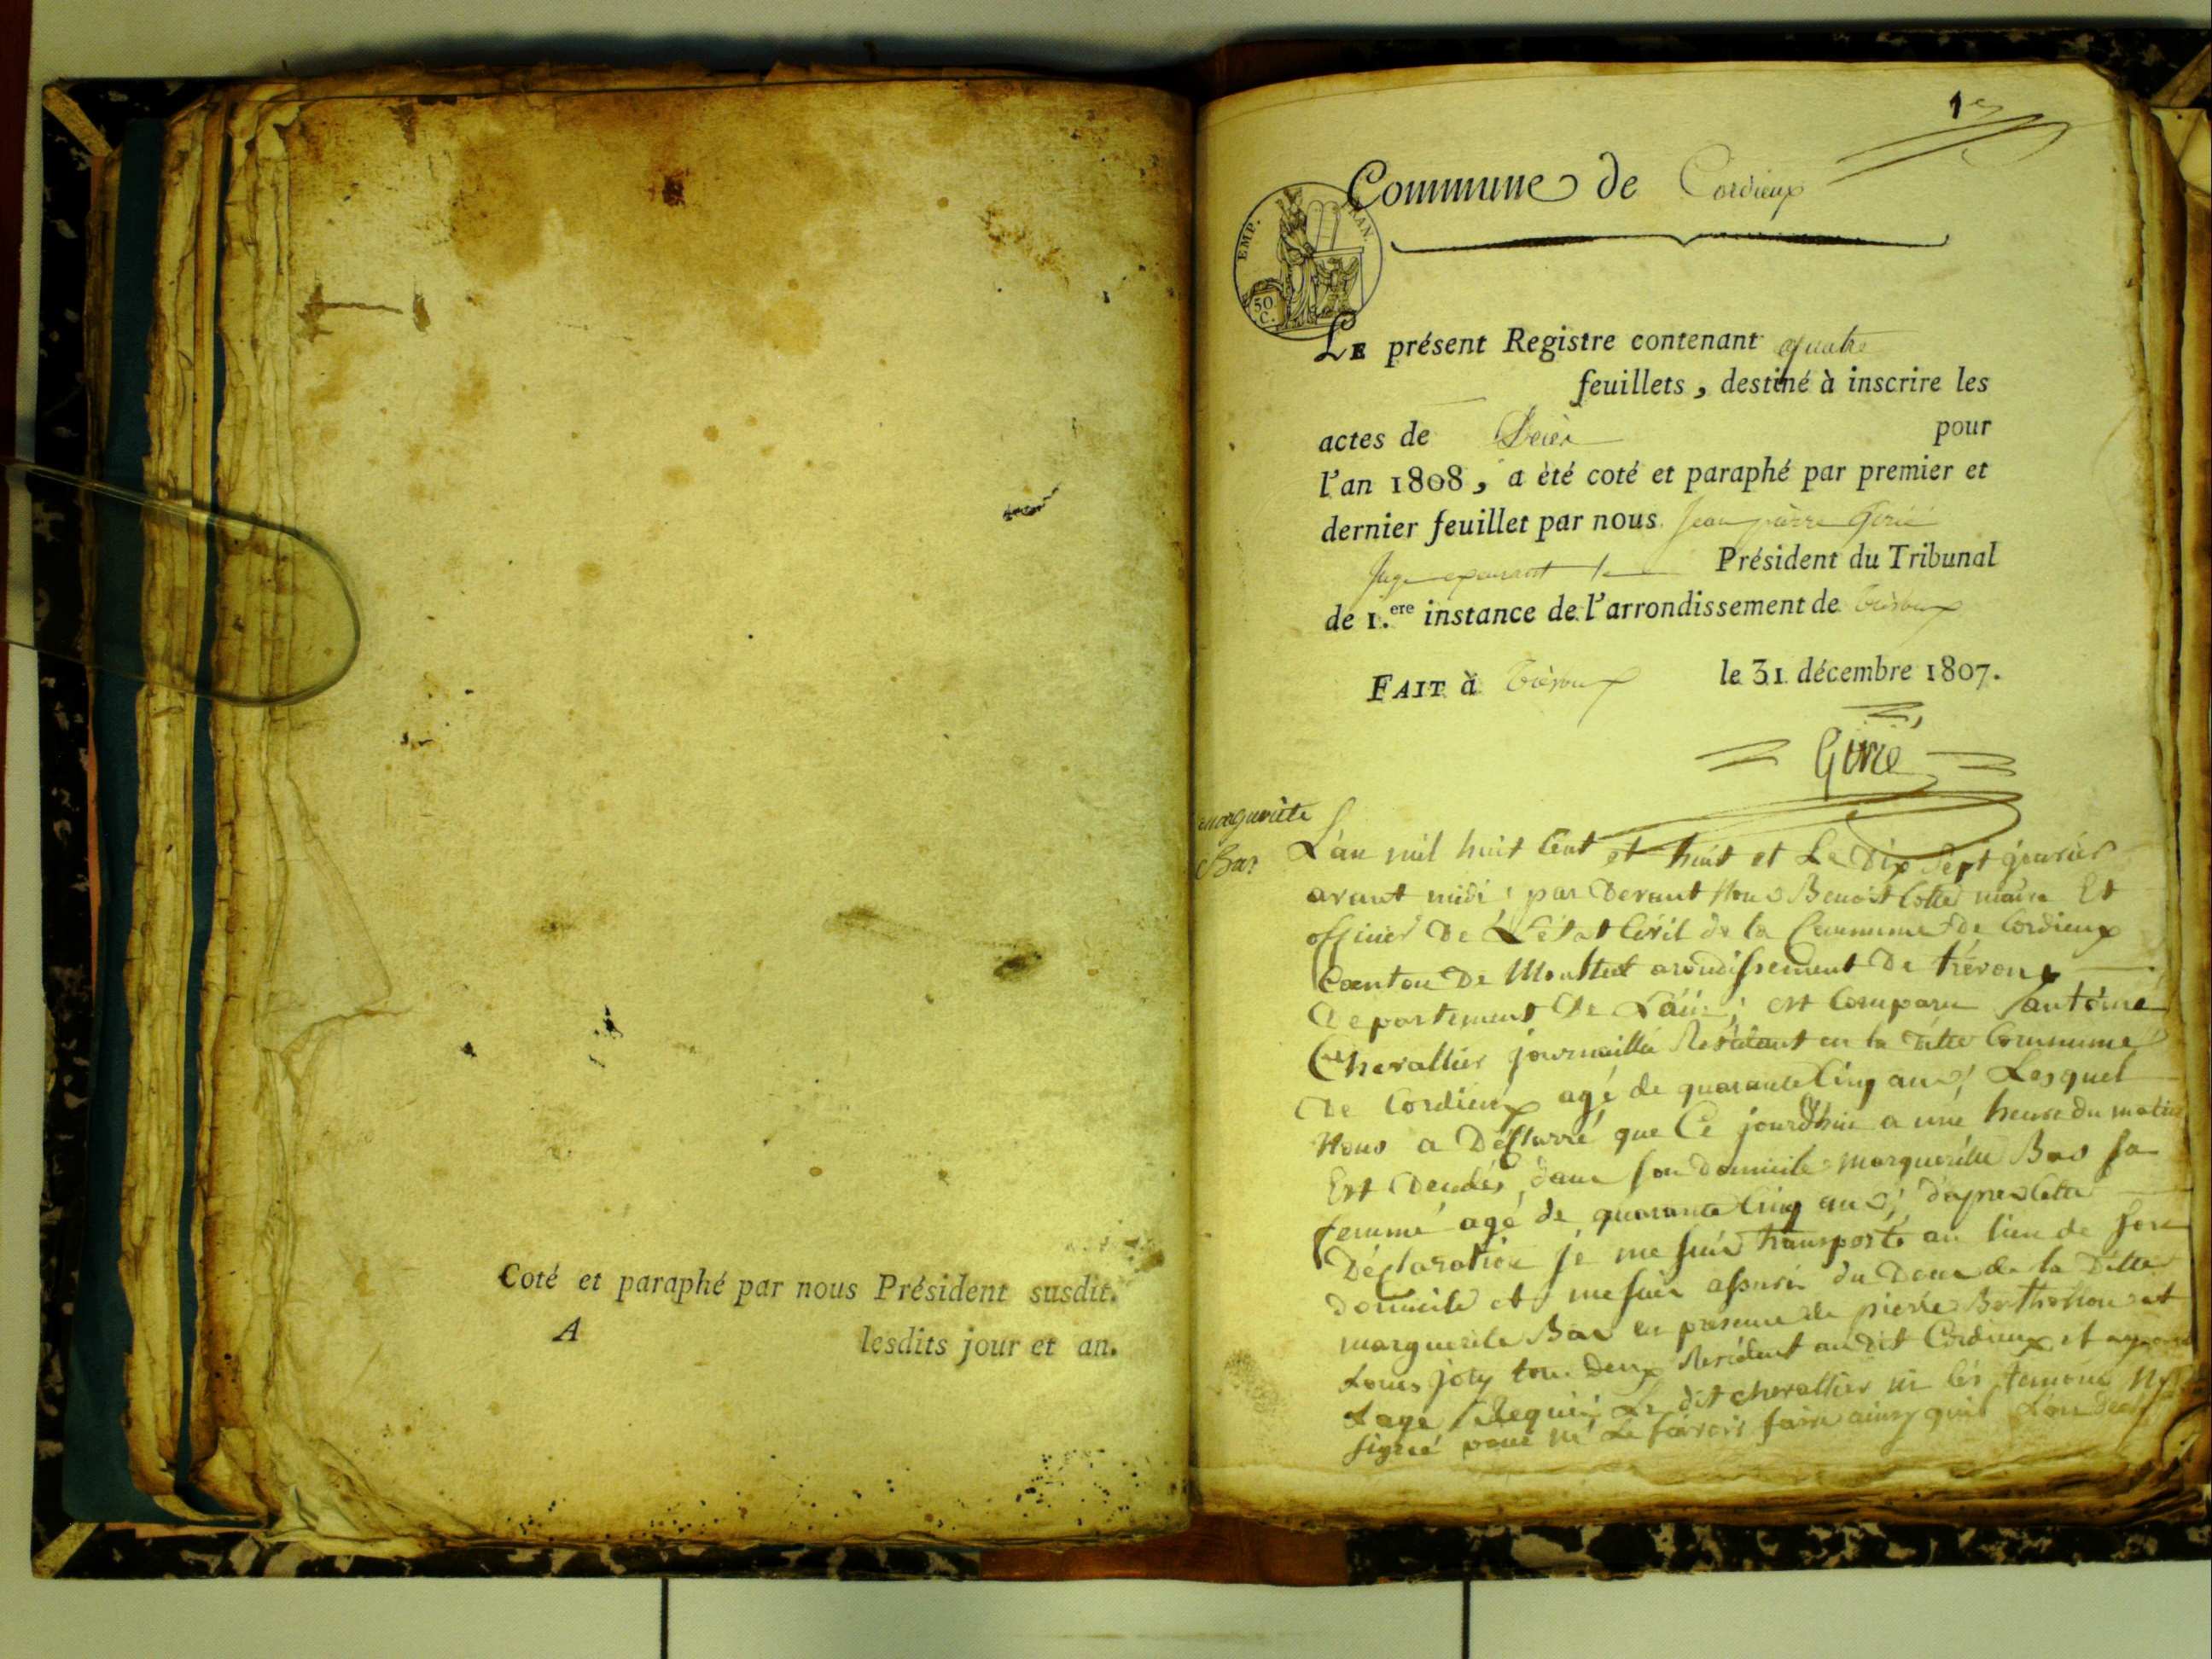 Coté et paraphé par nous Président susdit.
A lesdits jour et an.
1er
Commune de Cordieux
EMP. FRAN.
50
C.
LE présent Registre contenant quatre
feuillets, destiné à inscrire les
actes de Décès pour
l'an 1808, a èté coté et paraphé par premier et
dernier feuillet par nous Jean pierre Girié
Juge exerçant le Président du Tribunal
de 1.ere instance de l'arrondissement de Trévoux
FAIT à Trévoux le 31 décembre 1807.
Girié
marguerite
Bas
L'an mil huit Cent et huit et Le Dix Sept janvier
avant midi par Devant Nous Benoit Cotte maire Et
officier De L'état Civil de la Commune de Cordieux
Canton De Montluel arondissement De trévoux
Departement De L'ain; est Comparu antoine
Chevallier journallié Residant en la ditte Commune
De Cordieux agé de quarante Cinq ans; Lesquel
Nous a Déclarré que Ce jourdhui a une heure du matin
Est Decedés, dans son domicile marguerite Bas sa
femme agé de quarante Cinq ans; dapres Cette
Déclaration je me suis transporté au lieu de son
domicile et me suis assuré du Deces de la Ditte
marguerite Bas en presence de pierre Berthelon et
Louis joly tous Deux Residant au dit Cordieux et ayant
Lage Requis Le dit chevallier ni les temoins
signé pour ne Le savoir faire ainsy quil Lon